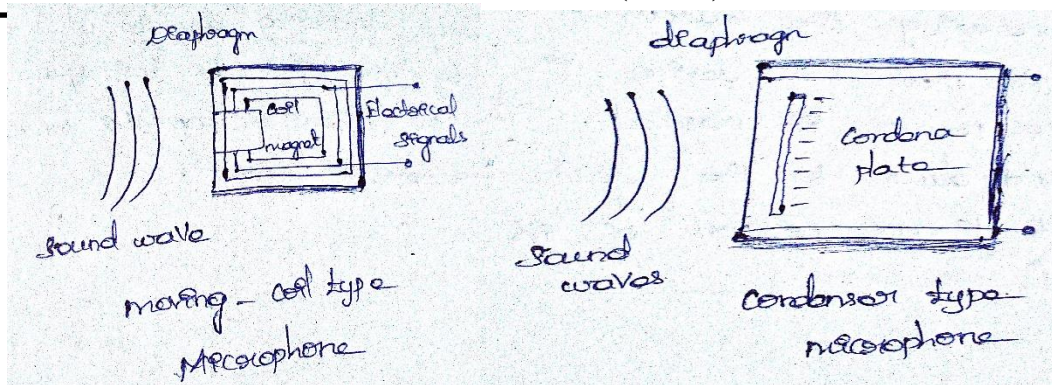 Deaphragm
coil
magnet
Electorical
signals
sound wave
moving - coil type
Microphone
deaphragn
Cordena
plate
Sound
waves
condensor type
microphone